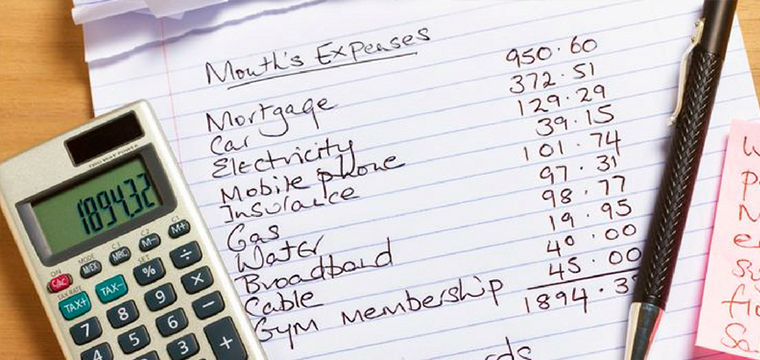 Month's Expenses
Mortgage 950.60
Car 372.51
Electricity 129.29
Mobile phone 39.15
Insurance 101.74
Gas 97.31
Water 98.77
Broadband 19.95
Cable 40.00
Gym Membership 45.00
1894.3
TWO WAY POWER
1894.32
ON MODE C-1 C-2 C1
C/AC M/EX MRC M- M+
TAX RATE SET
TAX+ TAX- % ÷
7 8 9 × −
4 5 6 +